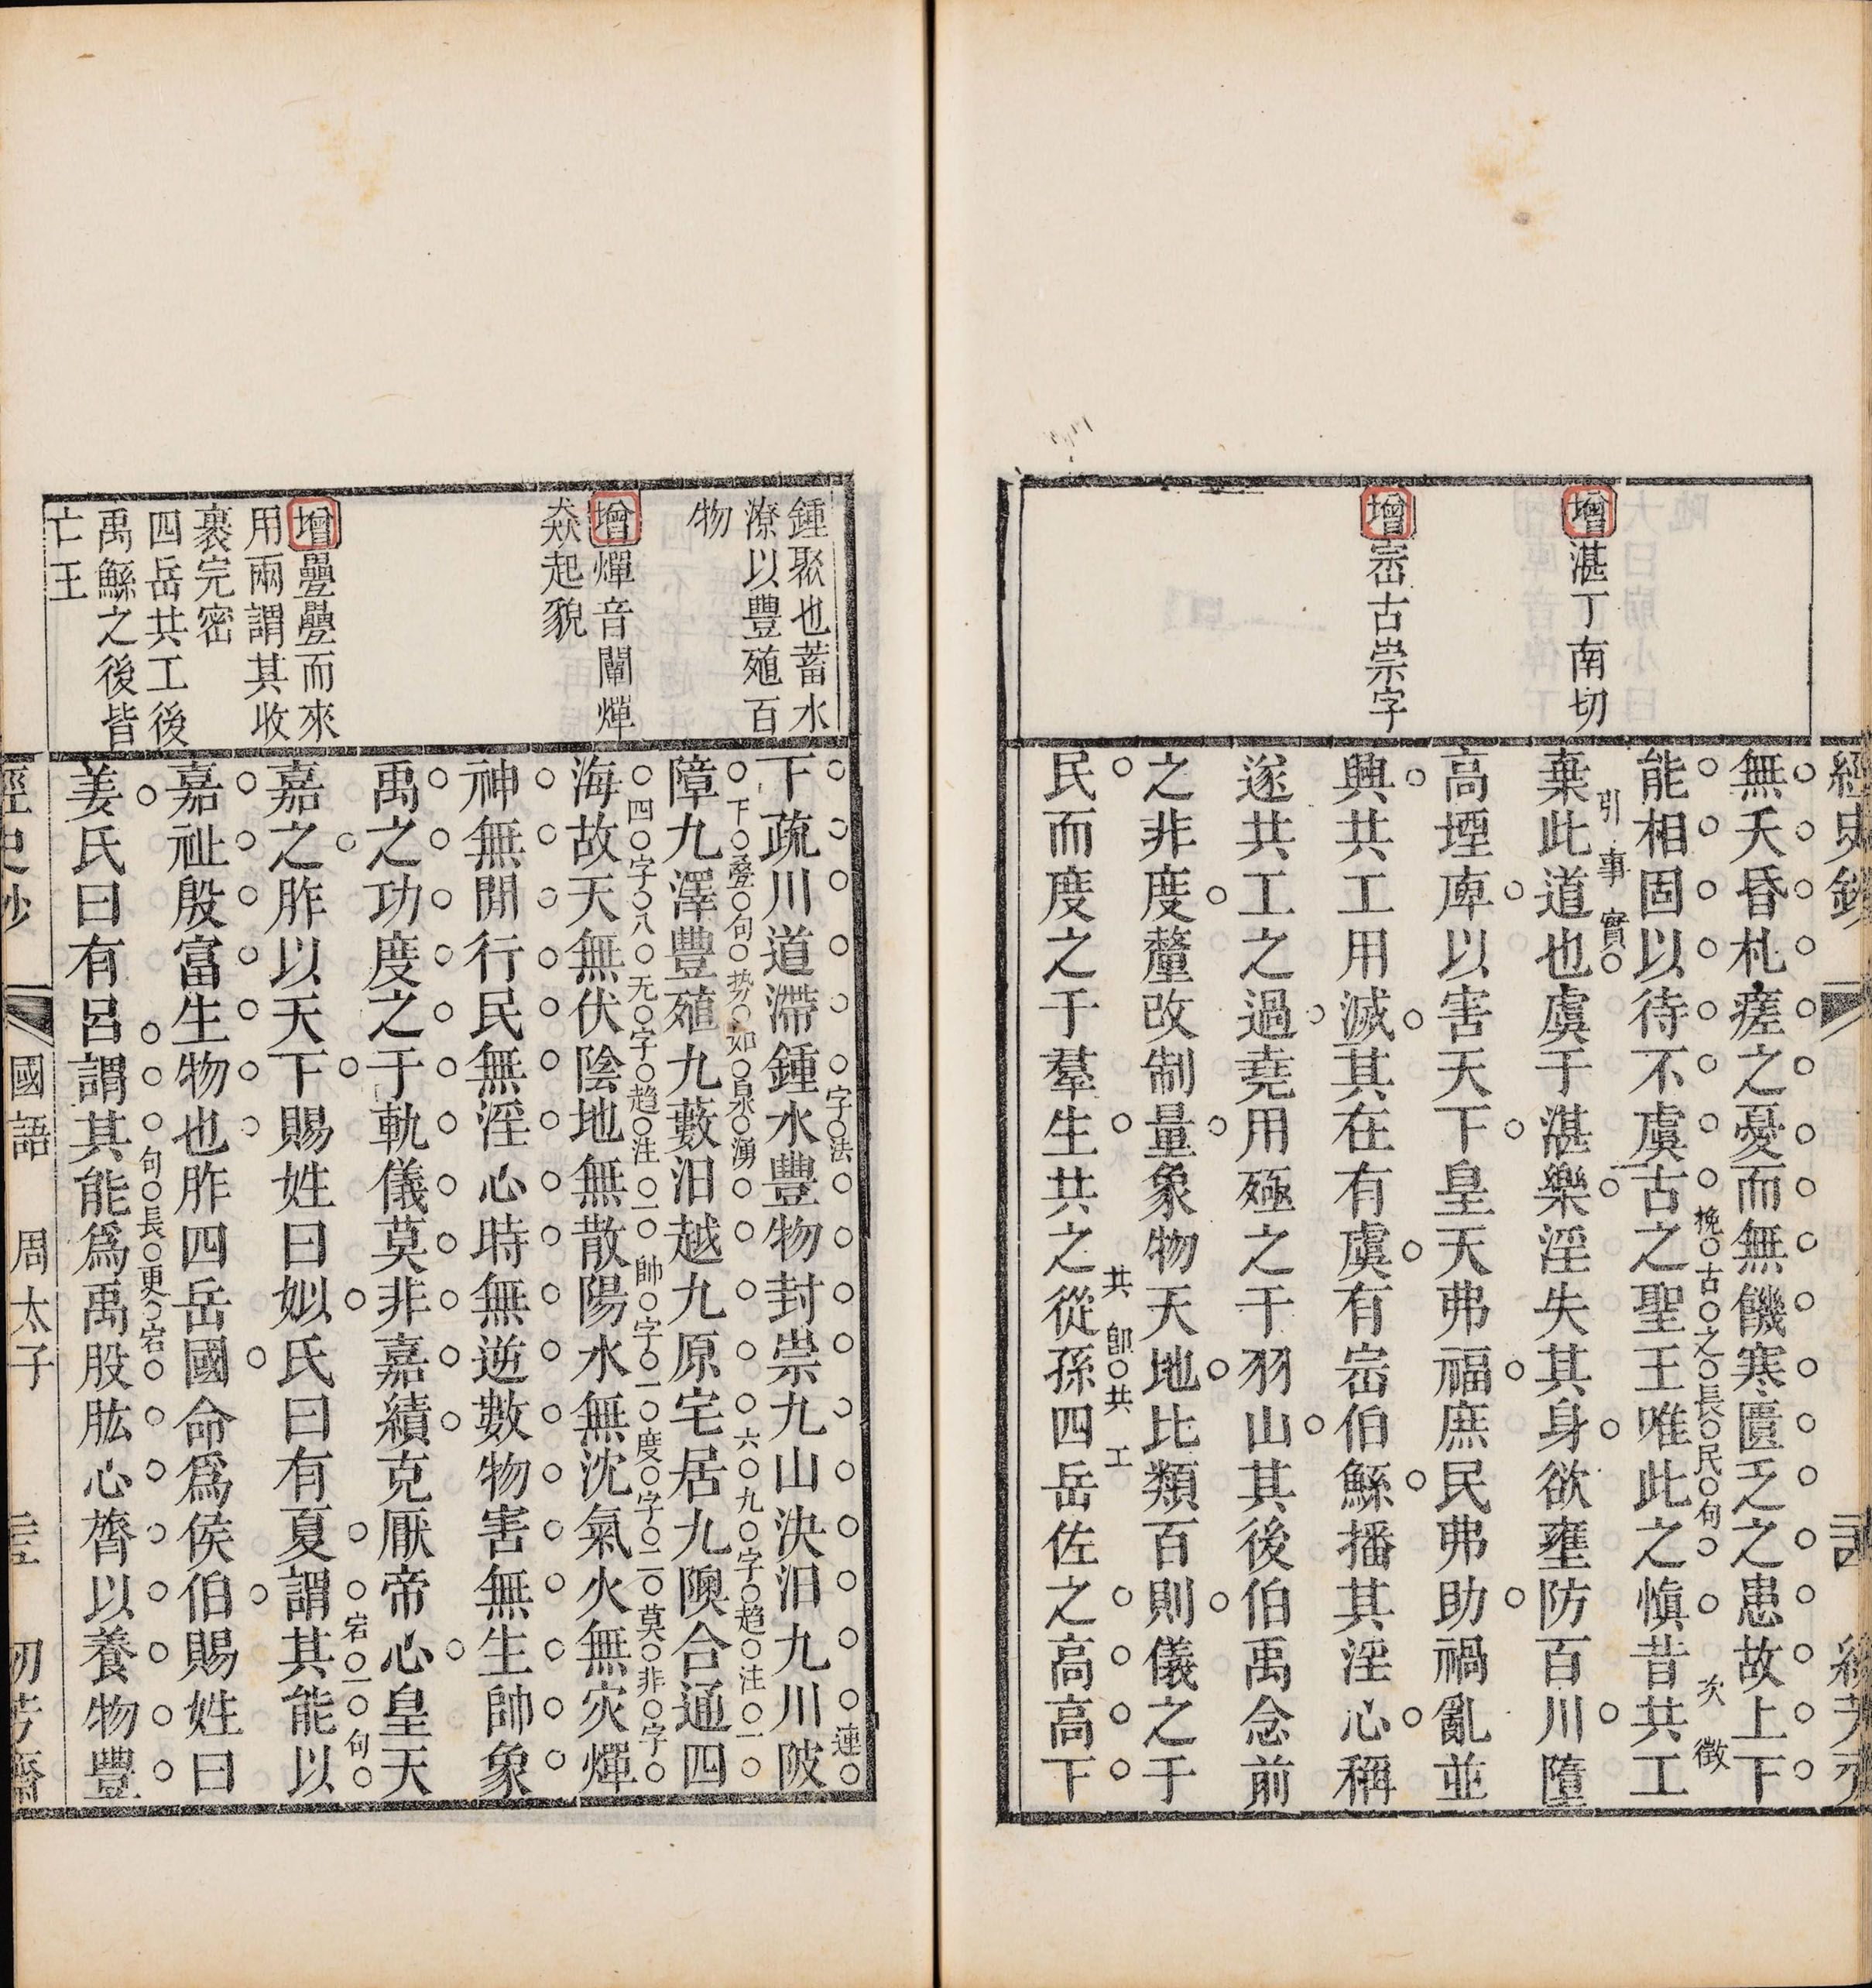 經史鈔
增湛丁南切
增崈古崇字
無夭昏札瘥之憂而無饑寒匱乏之患故上下
能相固以待不虞古之聖王唯此之愼昔共工
挽古之長民句
次徵
棄此道也虞于湛樂淫失其身欲壅防百川隳
引事實
高堙庳以害天下皇天弗福庶民弗助禍亂並
興共工用滅其在有虞有崈伯鯀播其淫心稱
遂共工之過堯用殛之于羽山其後伯禹念前
之非度釐改制量象物天地比類百則儀之于
民而度之于羣生共之從孫四岳佐之高高下
共卽共工
鍾聚也蓄水
潦以豐殖百
物
增燀音闡燀
焱起貌
增疊疊而來
用兩謂其收
裹完密
四岳共工後
禹鯀之後皆
亡王
下疏川道滯鍾水豐物封崇九山決汨九川陂
字法
連
障九澤豐殖九藪汨越九原宅居九隩合通四
下叠句势如泉湧
六九字趋注一
海故天無伏陰地無散陽水無沈氣火無灾燀
四字八无字趋注一帥字一度字二莫非字
神無閒行民無淫心時無逆數物害無生帥象
禹之功度之于軌儀莫非嘉績克厭帝心皇天
嘉之胙以天下賜姓曰姒氏曰有夏謂其能以
宕一句
嘉祉殷富生物也胙四岳國命爲侯伯賜姓曰
姜氏曰有呂謂其能爲禹股肱心膂以養物豐
句長更宕
經史鈔
國語
周太子